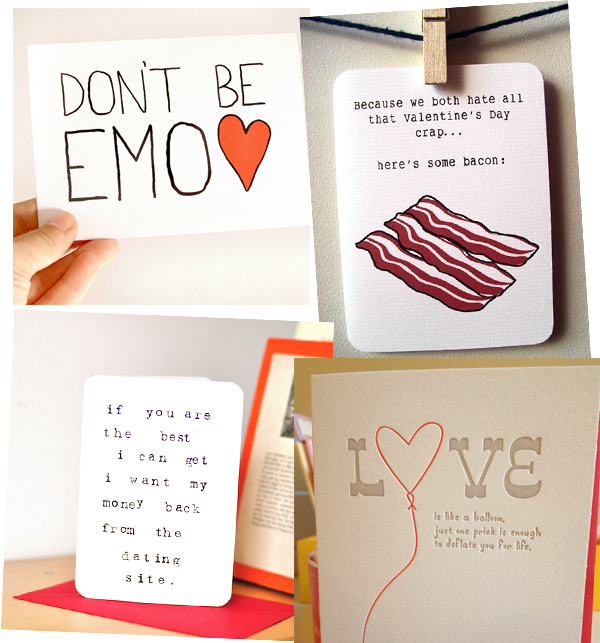 DON'T BE
EMO
Because we both hate all
that Valentine's Day
crap...
here's some bacon:
if you are
the best
i can get
i want my
money back
from the
dating
site.
L VE
is like a balloon,
just one prick is enough
to deflate you for life.